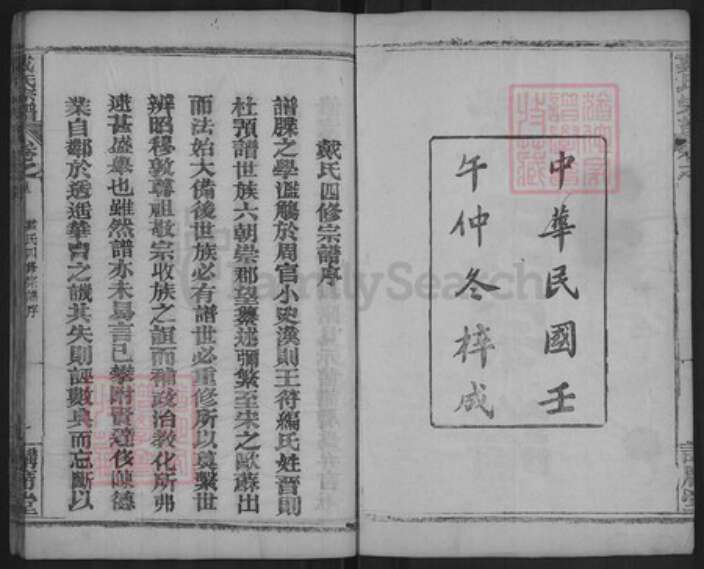 中華民國壬
午仲冬梓成
戴氏四修宗譜序
譜牒之學濫觴於周官小史漢則王符編氏姓晉則
杜預譜世族六朝崇郡望纂述彌繁至宋之歐蘇出
而法始大備後世族必有譜世必重修所以奠繫世
辨昭穆敦尊祖敬宗收族之誼而補政治教化所弗
逮甚盛舉也雖然譜亦未易言已攀附賢達侈陳德
業自鄰於透逃華胄之譏其失則誣數典而忘斷以
戴氏宗譜
卷之
戴氏四修宗譜序
FamilySearch